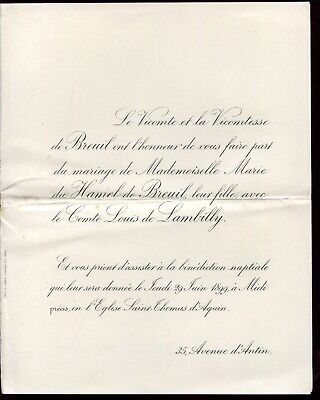 Le Vicomte et la Vicomtesse
de Breuil ont l'honneur de vous faire part
du mariage de Mademoiselle Marie
du Hamel de Breuil, leur fille, avec
le Comte Louis de Lambilly.
Et vous prient d'assister à la bénédiction nuptiale
qui leur sera donnée le Jeudi 29 Juin 1899, à Midi
précis, en l'Eglise Saint-Thomas d'Aquin.
35, Avenue d'Antin.